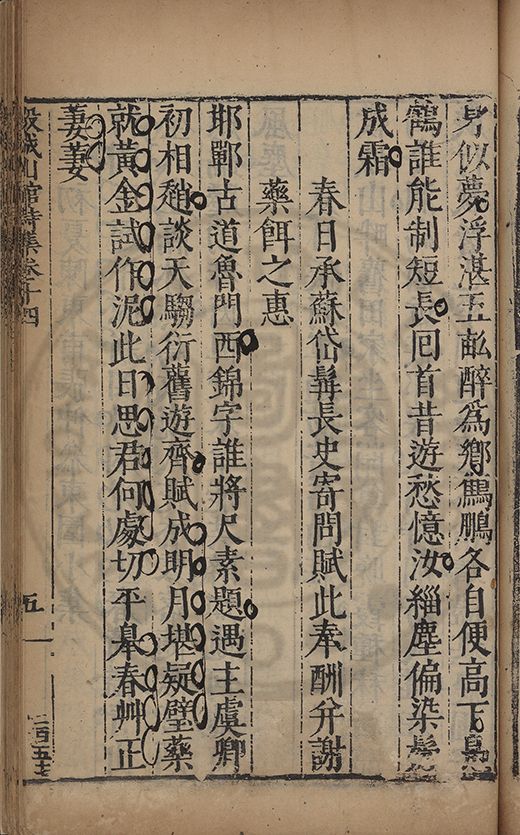 身似夢浮湛五畝醉為鄉鷦鵬各自便高下鳧
鶴誰能制短長回首昔遊愁憶汝緇塵偏染鬢
成霜
春日承蘇岱髯長史寄問賦此奉酬并謝
藥餌之惠
邯鄲古道魯門西錦字誰將尺素題遇主虞卿
初相趙談天騶衍舊遊齊賦成明月堪疑璧藥
就黃金試作泥此日思君何處切平皋春艸正
萋萋
穀城山館詩集卷十四
五